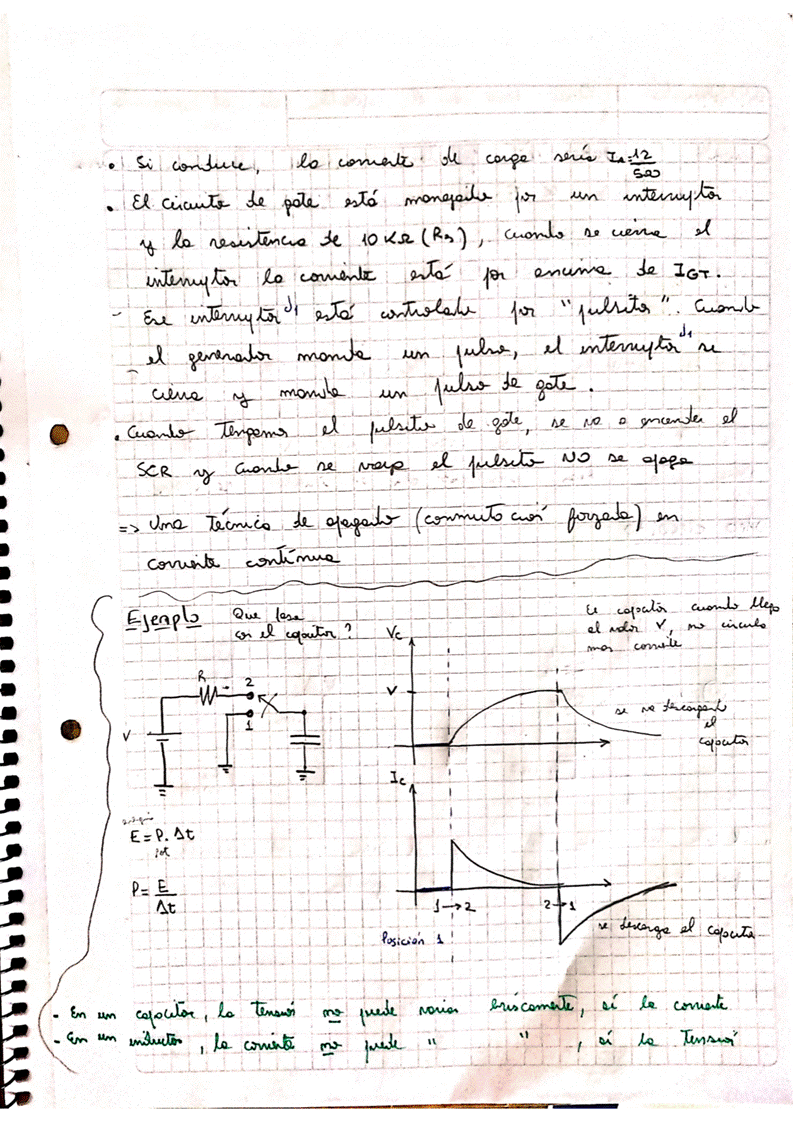 • Si conduce, la corriente de carga sería IA = 12/500
• El circuito de gate está manejado por un interruptor
y la resistencia de 10 KΩ (R3), cuando se cierra el
interruptor la corriente está por encima de IGT.
- Ese interruptor J1 está controlado por "pulsitos". Cuando
el generador manda un pulso, el interruptor J1 se
cierra y manda un pulso de gate.
• Cuando tengamos el pulsito de gate, se va a encender el
SCR y cuando se vaya el pulsito NO se apaga
=> Una técnica de apagado (conmutación forzada) en
corriente contínua
Ejemplo Que pasa
con el capacitor?
El capacitor cuando llega
al valor V, no circula
mas corriente
Vc
V
se va descargando
el
capacitor
R
2
1
V
Ic
energía
E = P. Δt
pot
P = E/Δt
1→2
2→1
Posición 1
se descarga el capacitor
- En un capacitor, la tensión no puede variar bruscamente, sí la corriente
- En un inductor, la corriente no puede " ", sí la tensión